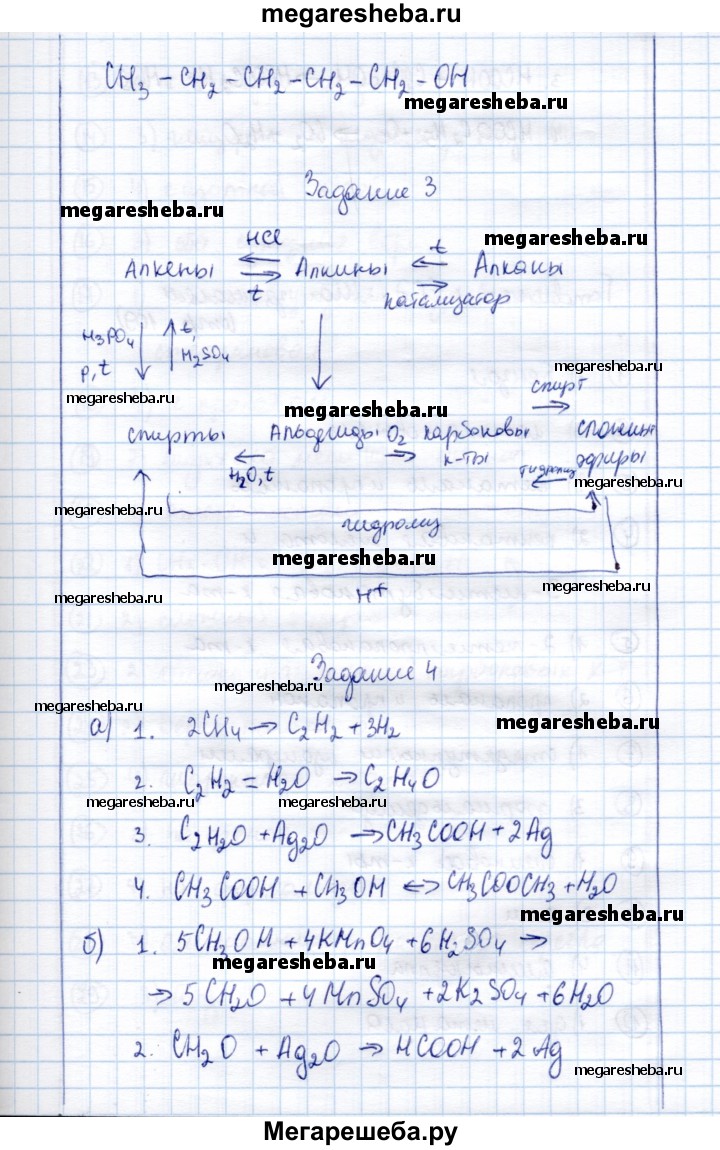 megaresheba.ru
CH₃ – CH₂ – CH₂ – CH₂ – CH₂ – OH
megaresheba.ru
Задание 3
megaresheba.ru
HCl
megaresheba.ru
t
Алкены ⇄ Алкины ⇄ Алканы
t
катализатор
H₃PO₄
p, t
t,
H₂SO₄
megaresheba.ru
megaresheba.ru
megaresheba.ru
спирт
спирты Альдегиды O₂ карбоновы сложные
← → к-ты эфиры
H₂O, t
гидролиз
megaresheba.ru
megaresheba.ru
гидролиз
megaresheba.ru
megaresheba.ru
megaresheba.ru
H⁺
Задание 4
megaresheba.ru
megaresheba.ru
megaresheba.ru
а) 1. 2CH₄ → C₂H₂ + 3H₂
2. C₂H₂ = H₂O → C₂H₄O
megaresheba.ru
megaresheba.ru
3. C₂H₂O + Ag₂O → CH₃COOH + 2Ag
4. CH₃COOH + CH₃OH ↔ CH₃COOCH₃ + H₂O
megaresheba.ru
б) 1. 5CH₃OH + 4KMnO₄ + 6H₂SO₄ →
megaresheba.ru
→ 5CH₂O + 4MnSO₄ + 2K₂SO₄ + 6H₂O
2. CH₂O + Ag₂O → HCOOH + 2Ag
megaresheba.ru
Мегарешеба.ру